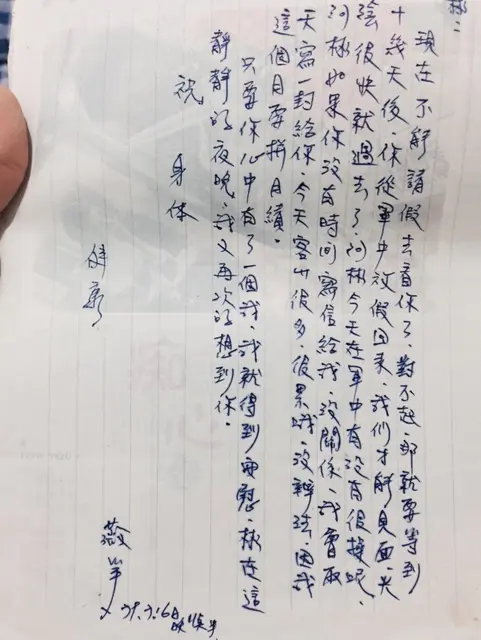 彬:
現在不能請假去看你了,對不起,那就要等到
十幾天後,你從軍中放假回來,我們才能見面,
很快就過去了,阿彬今天在軍中有沒有很操呢,
阿彬如果你沒有時間寫信給我,沒關係,我會
天寫一封給你,今天客人很多,很累哦,沒辦法,因我
這個月要拼月績。
只要你心中有了一個我,我就得到安慰,彬在這
靜靜的夜晚,我又再次的想到你。
祝
身体
健康
敬筆